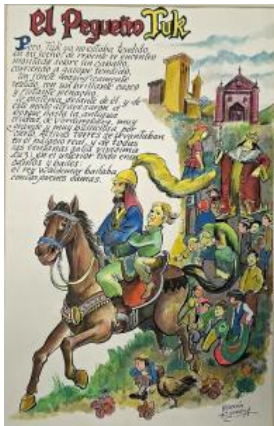 El Pequeño Tuk
Pero, Tuk ya no estaba tendido,
en su sueño de repente se encontró
montado sobre un caballo,
corriendo a galope tendido,
un jinete magníficamente
vestido, con un brillante casco
y flotante penacho,
lo sostenía delante de él, y de
este modo atravesaron el
bosque hasta la antigua
ciudad de Vordingborg, muy
grande y muy bulliciosa, por
cierto. Altivas torres se levantaban
en el palacio real, y de todas
las ventanas salía vivísima
luz; en el interior todo eran
cantos y bailes:
el rey Waldemar bailaba
con las jóvenes damas.